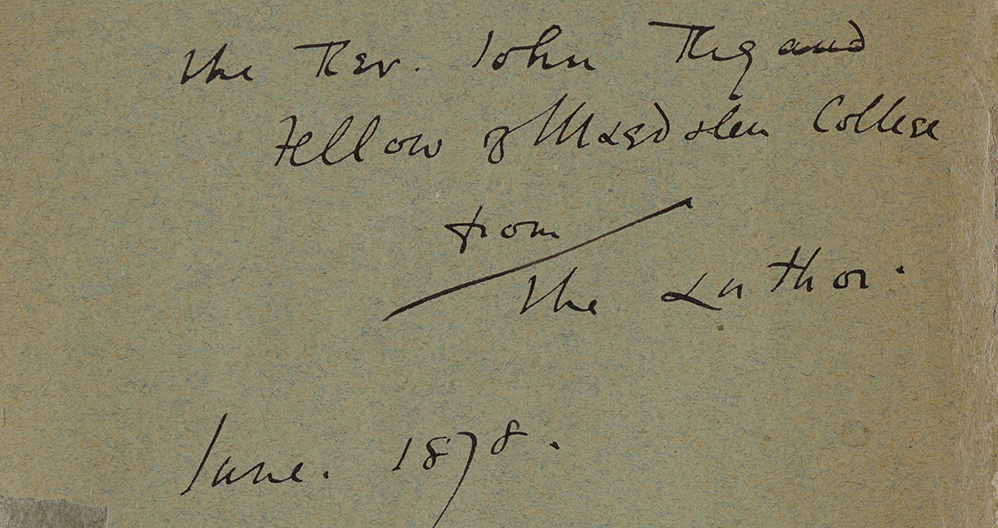 the Rev. John Rigaud
Fellow of Magdalen College
from
the Author.
June. 1878.